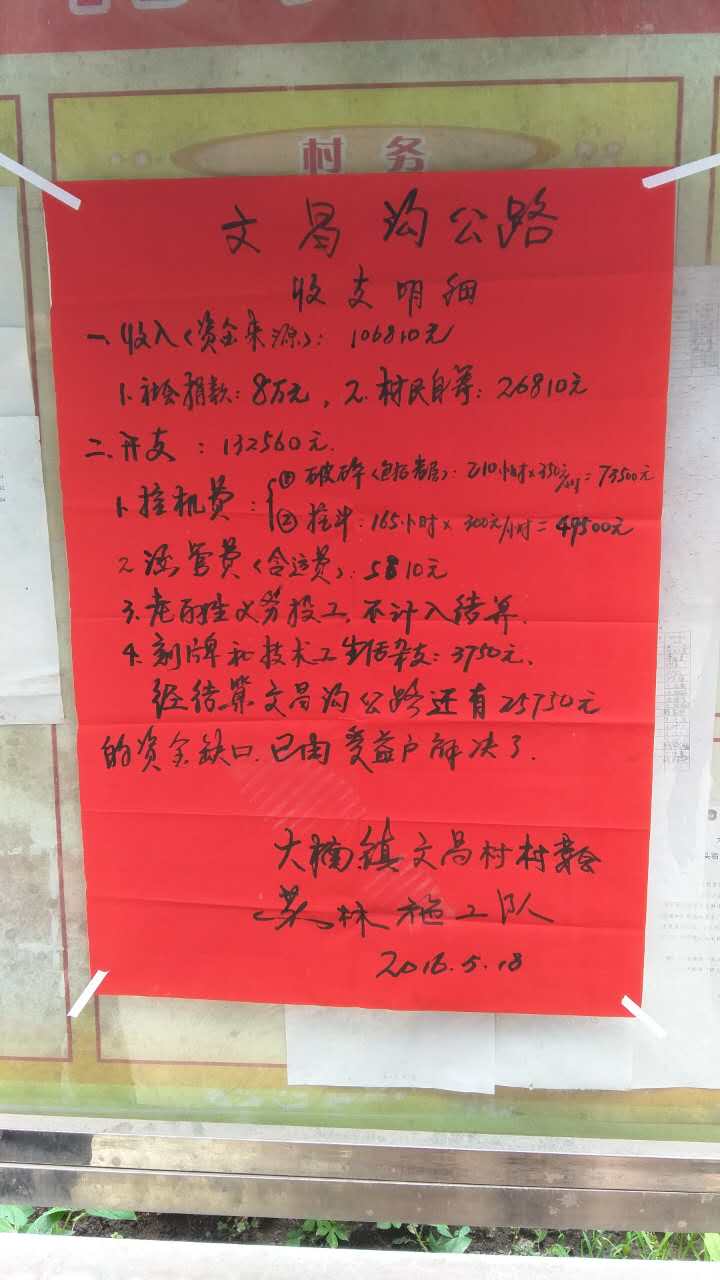 村务
文昌沟公路
收支明细
一、收入(资金来源): 106810元
1.社会捐款: 8万元, 2.村民自筹: 26810元
二、开支: 132560元.
1.挖机费: ①破碎(包括): 210小时×350元/小时=73500元
②挖斗: 165小时×300元/小时=49500元
2.涵管费(含运费): 5810元
3.老百姓义务投工,不计入结算.
4.刻牌和技术工生活杂支: 3750元.
经结算文昌沟公路还有25750元
的资金缺口.已由受益户解决了.
大楠镇文昌村村委会
林施工队
2016.5.18